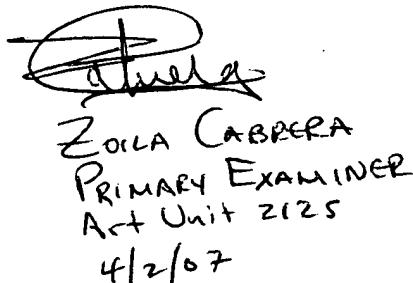 ZOILA CABRERA
PRIMARY EXAMINER
Art Unit 2125
4/2/07